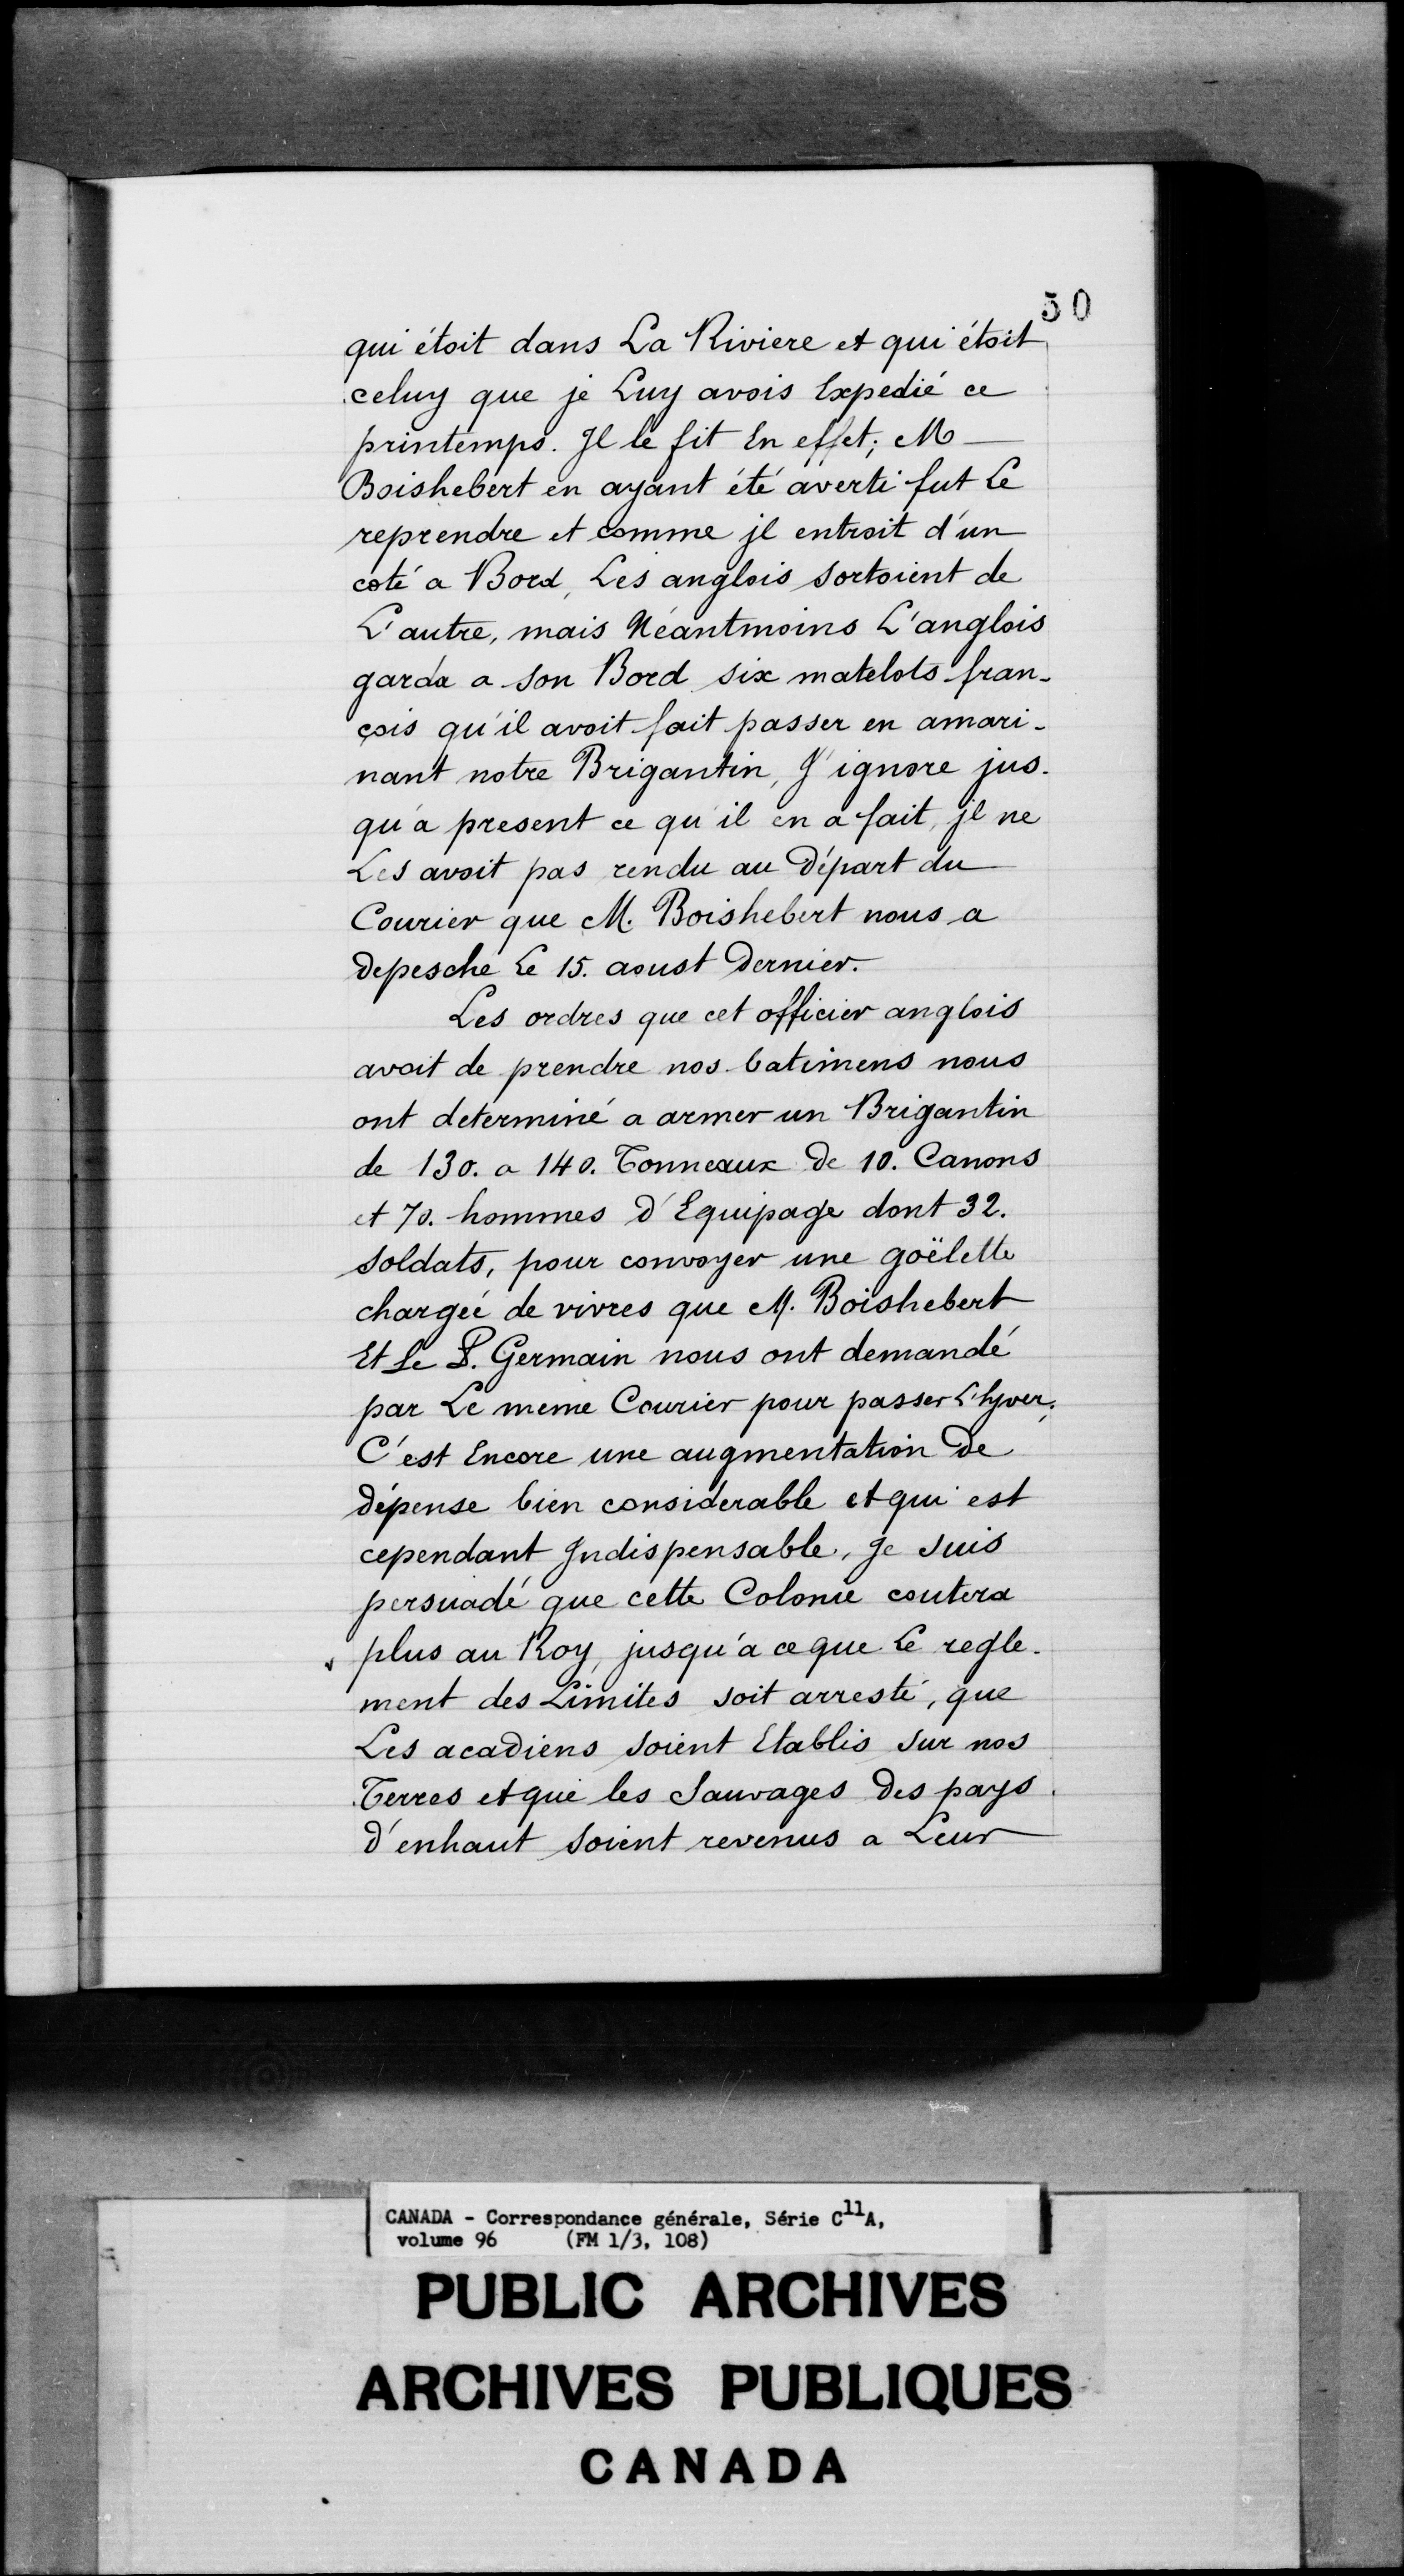 50
qui étoit dans La Riviere et qui étoit
celuy que je Luy avois Expedié ce
printemps. Jl le fit En effet; M
Boishebert en ayant été averti fut Le
reprendre et comme jl entroit d'un
coté a Bord, Les anglois sortoient de
L'autre, mais Néantmoins L'anglois
garda a son Bord six matelots fran-
çois qu'il avoit fait passer en amari-
nant notre Brigantin, J'ignore jus-
qu'a present ce qu'il en a fait, jl ne
Les avoit pas rendu au Départ du
Courier que M. Boishebert nous a
depesché Le 15. aoust Dernier.
Les ordres que cet officier anglois
avoit de prendre nos batimens nous
ont determiné a armer un Brigantin
de 130. a 140. Tonneaux De 10. Canons
et 70. hommes d'Equipage dont 32.
soldats, pour convoyer une goëlette
chargée de vivres que M. Boishebert
Et Le P. Germain nous ont demandé
par Le meme Courier pour passer L'hyver;
C'est Encore une augmentation De
dépense bien considerable et qui est
cependant Jndispensable, Je suis
persuadé que cette Colonie coutera
plus au Roy, jusqu'a ce que Le regle-
ment des Limites soit arresté, que
Les acadiens soient Etablis sur nos
Terres et que les Sauvages Des pays
d'enhaut soient revenus a Leur
CANADA - Correspondance générale, Série C11A,
volume 96 (FM 1/3, 108)
PUBLIC ARCHIVES
ARCHIVES PUBLIQUES
CANADA